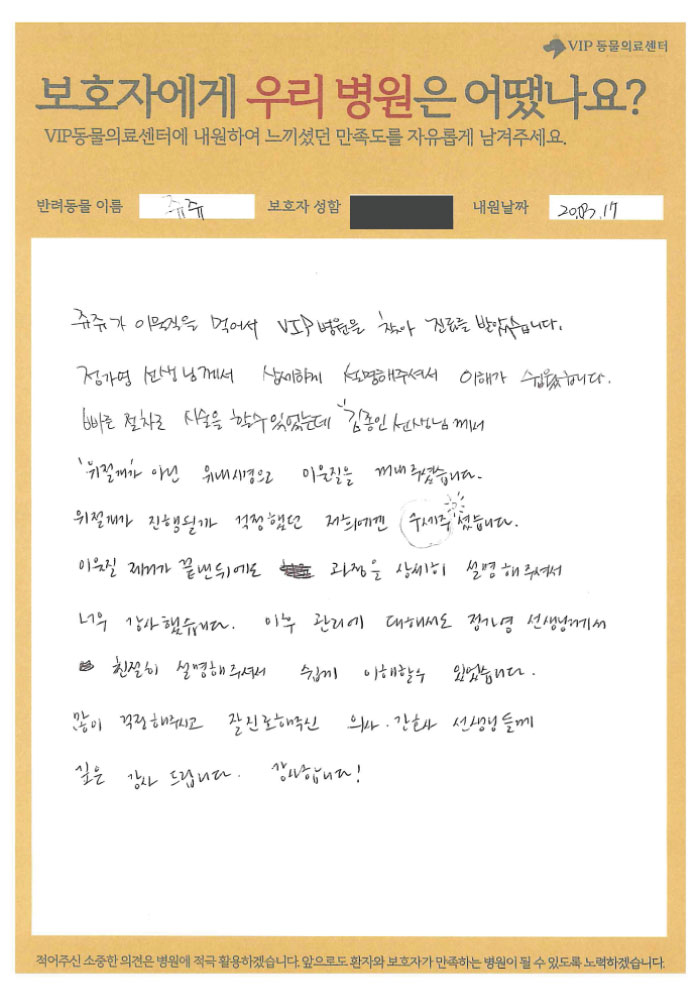 VIP 동물의료센터
보호자에게 우리 병원은 어땠나요?
VIP동물의료센터에 내원하여 느끼셨던 만족도를 자유롭게 남겨주세요.
반려동물 이름 쥬쥬 보호자 성함 내원날짜 20.03.17
쥬쥬가 이물질을 먹어서 VIP병원을 찾아 진료를 받았습니다.
정가영 선생님께서 상세하게 설명해주셔서 이해가 쉬웠습니다.
빠른 절차로 시술을 할수 있었는데 "김종인 선생님"께서
'위절개'가 아닌 위내시경으로 이물질을 꺼내주셨습니다.
위절개가 진행될까 걱정했던 저희에겐 구세주셨습니다.
이물질 제거가 끝난뒤에도 과정을 상세히 설명해주셔서
너무 감사했습니다. 이후 관리에 대해서도 정가영 선생님께서
친절히 설명해주셔서 쉽게 이해할수 있었습니다.
많이 걱정해주시고 잘진료해주신 의사·간호사 선생님들께
깊은 감사 드립니다. 감사합니다!
적어주신 소중한 의견은 병원에 적극 활용하겠습니다. 앞으로도 환자와 보호자가 만족하는 병원이 될 수 있도록 노력하겠습니다.